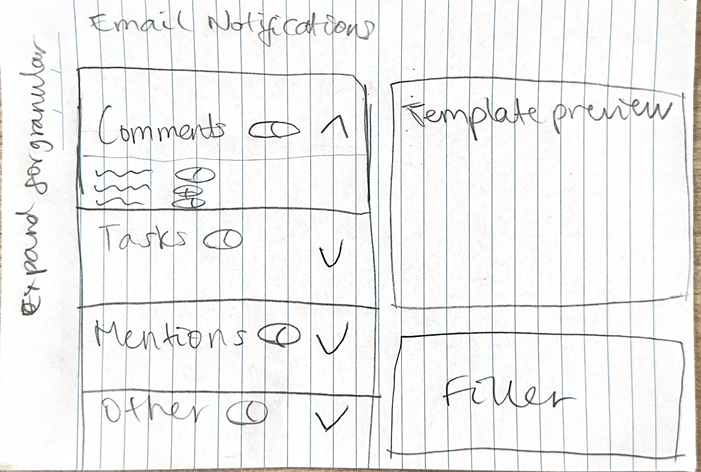 Email Notifications
Expand for granular
Comments
Tasks
Mentions
Other
Template preview
Filler